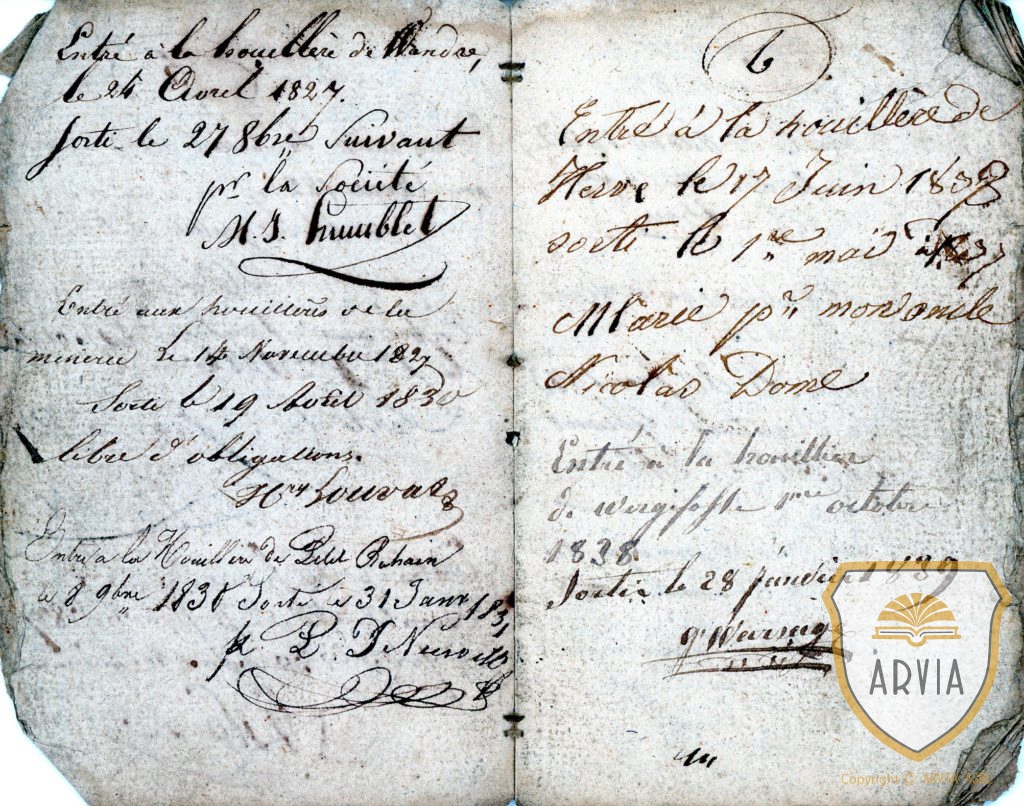 Entré à la houillère de Wandre,
le 24 Avril 1827.
Sorti le 27 8bre Suivant
pr la Société
M. J. humblet
Entré aux houillères de la
minerie le 14 Novembre 1827
Sorti le 19 Avril 1830
libre d'obligations.
Hry Louva
Entré a la Houillere de Petit Rechain
le 8 9bre 1830 Sorti le 31 Janr 1831
P. D
6
Entré à la houillère de
Herve le 17 Juin 183
sorti le 1re mai
Marie pr mon oncle
Nicolas Dome
Entré a la houillier
de wergifosse 1re octobre
1838
Sortie le 28 janvier 1839
ARVIA
Copyright ©